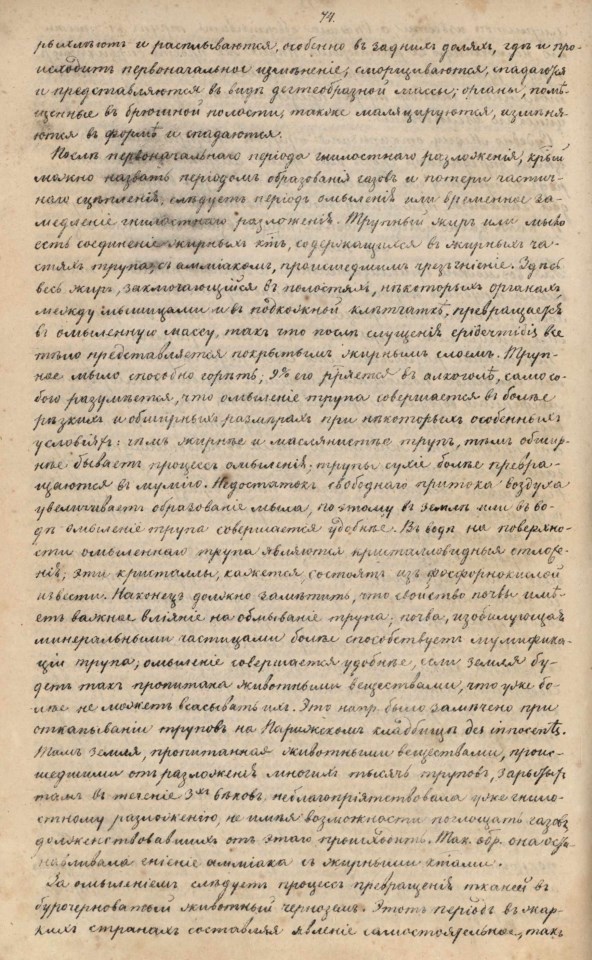 74.
рыхлѣютъ и расплываются, особенно въ заднихъ доляхъ, гдѣ и про-
исходитъ первоначальное измѣненіе; сморщиваются, спадаются
и представляются въ видѣ дегтеобразной массы; органы, помѣ-
щенные въ брюшной полости, также маляцируются, измѣня-
ются въ формѣ и спадаются.
Послѣ первоначальнаго періода гнилостнаго разложенія, к͠рый
можно назвать періодомъ образованія газовъ и потери частич-
наго сцѣпленія, слѣдуетъ періодъ омыленія или временное за-
медленіе гнилостнаго разложенія. Трупный жиръ или мыло
есть соединеніе жирныхъ к͠тъ, содержащихся въ жирныхъ ча-
стяхъ трупа, съ амміакомъ, происшедшимъ чрезъ гніеніе. Здѣсь
весь жиръ, заключающійся въ полостяхъ, нѣкоторыхъ органахъ
между мышицами и въ подкожной клѣтчаткѣ, превращается
въ омыленную массу, такъ что послѣ слущенія epidermidis все
тѣло представляется покрытымъ жирнымъ слоемъ. Труп-
ное мыло способно горѣть; 9% его въ алкоголѣ, само со-
бою разумѣется, что омыленіе трупа совершается въ болѣе
рѣзкихъ и обширныхъ размѣрахъ при нѣкоторыхъ особенныхъ
условіяхъ: чѣмъ жирнѣе и маслянистѣе трупъ, тѣмъ обшир-
нѣе бываетъ процессъ омыленія; трупы сухіе болѣе превра-
щаются въ мумію. Недостатокъ свободнаго притока воздуха
увеличиваетъ образованіе мыла, поэтому въ землѣ или въ во-
дѣ омыленіе трупа совершается удобнѣе. Въ водѣ на поверхно-
сти омыленнаго трупа являются кристалловидныя отложе-
нія; эти кристаллы, кажется, состоятъ изъ фосфорнокислой
извести. Наконецъ должно замѣтить, что свойство почвы имѣ-
етъ важное вліяніе на обмываніе трупа; почва, изобилующая
минеральными частицами болѣе способствуетъ мумифика-
ціи трупа; омыленіе совершается удобнѣе, если земля бу-
детъ такъ пропитана животными веществами, что уже бо-
лѣе не можетъ всасывать ихъ. Это напр. было замѣчено при
откапываніи труповъ на Парижскомъ кладбищѣ des innocents.
Тамъ земля, пропитанная животными веществами, проис-
шедшими отъ разложенія многихъ тысячъ труповъ, зарытыхъ
тамъ въ теченіе 3хъ вѣковъ, неблагопріятствовала уже гнило-
стному разложенію, не имѣя возможности поглощать газовъ
долженствовавшихъ отъ этаго произойти. Так. обр. она оста-
навливала гніеніе амміака съ жирными к͠тами.
За омыленіемъ слѣдуетъ процессъ превращенія тканей въ
бурочерноватый животный черноземъ. Этотъ періодъ въ жар-
кихъ странахъ составляя явленіе самостоятельное, такъ